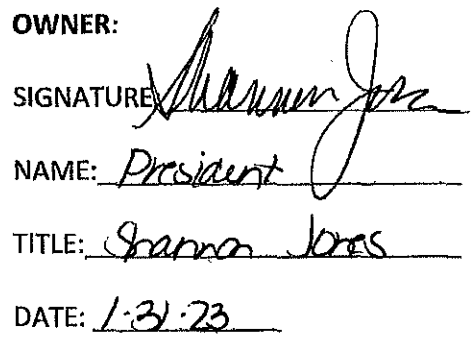 OWNER:
SIGNATURE Shannon Jones
NAME: President
TITLE: Shannon Jones
DATE: 1-31-23